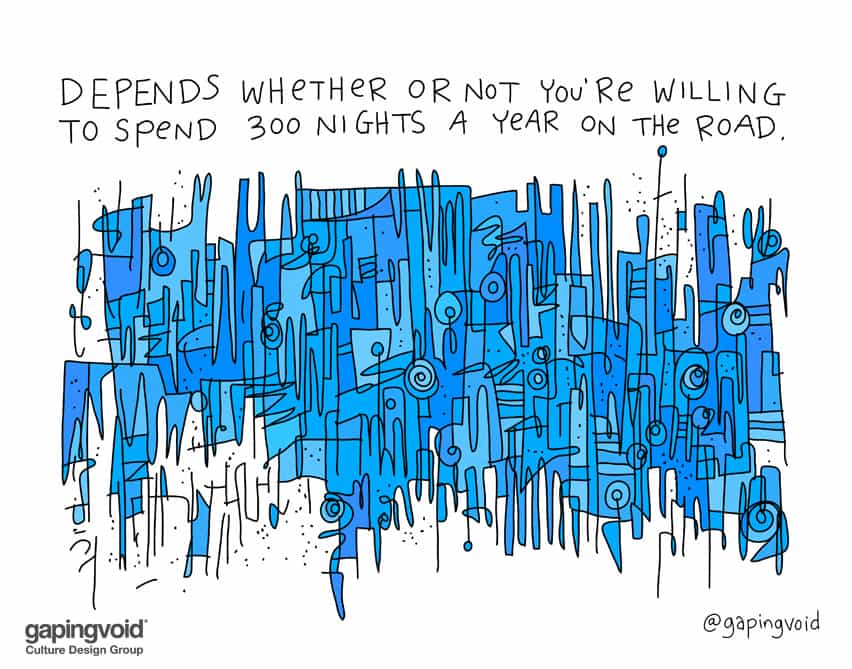 DEPENDS WHETHER OR NOT YOU'RE WILLING
TO SPEND 300 NIGHTS A YEAR ON THE ROAD.
gapingvoid®
Culture Design Group
@gapingvoid